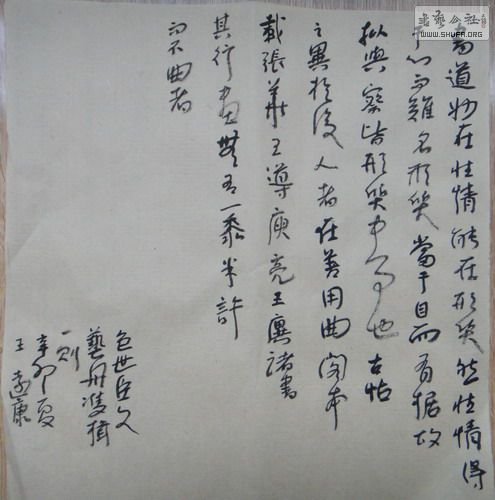 書藝公社
WWW.SHUFA.ORG
書道妙在性情能在形質然性情得
于心而難名形質當于目而有据故
拟與察皆形質中事也古帖
之異於後人者在善用曲閣本
載張華王導庾亮王廙諸書
其行畫無有一黍米許
而不曲者
包世臣文
藝舟雙楫
一則
辛卯夏
王 康